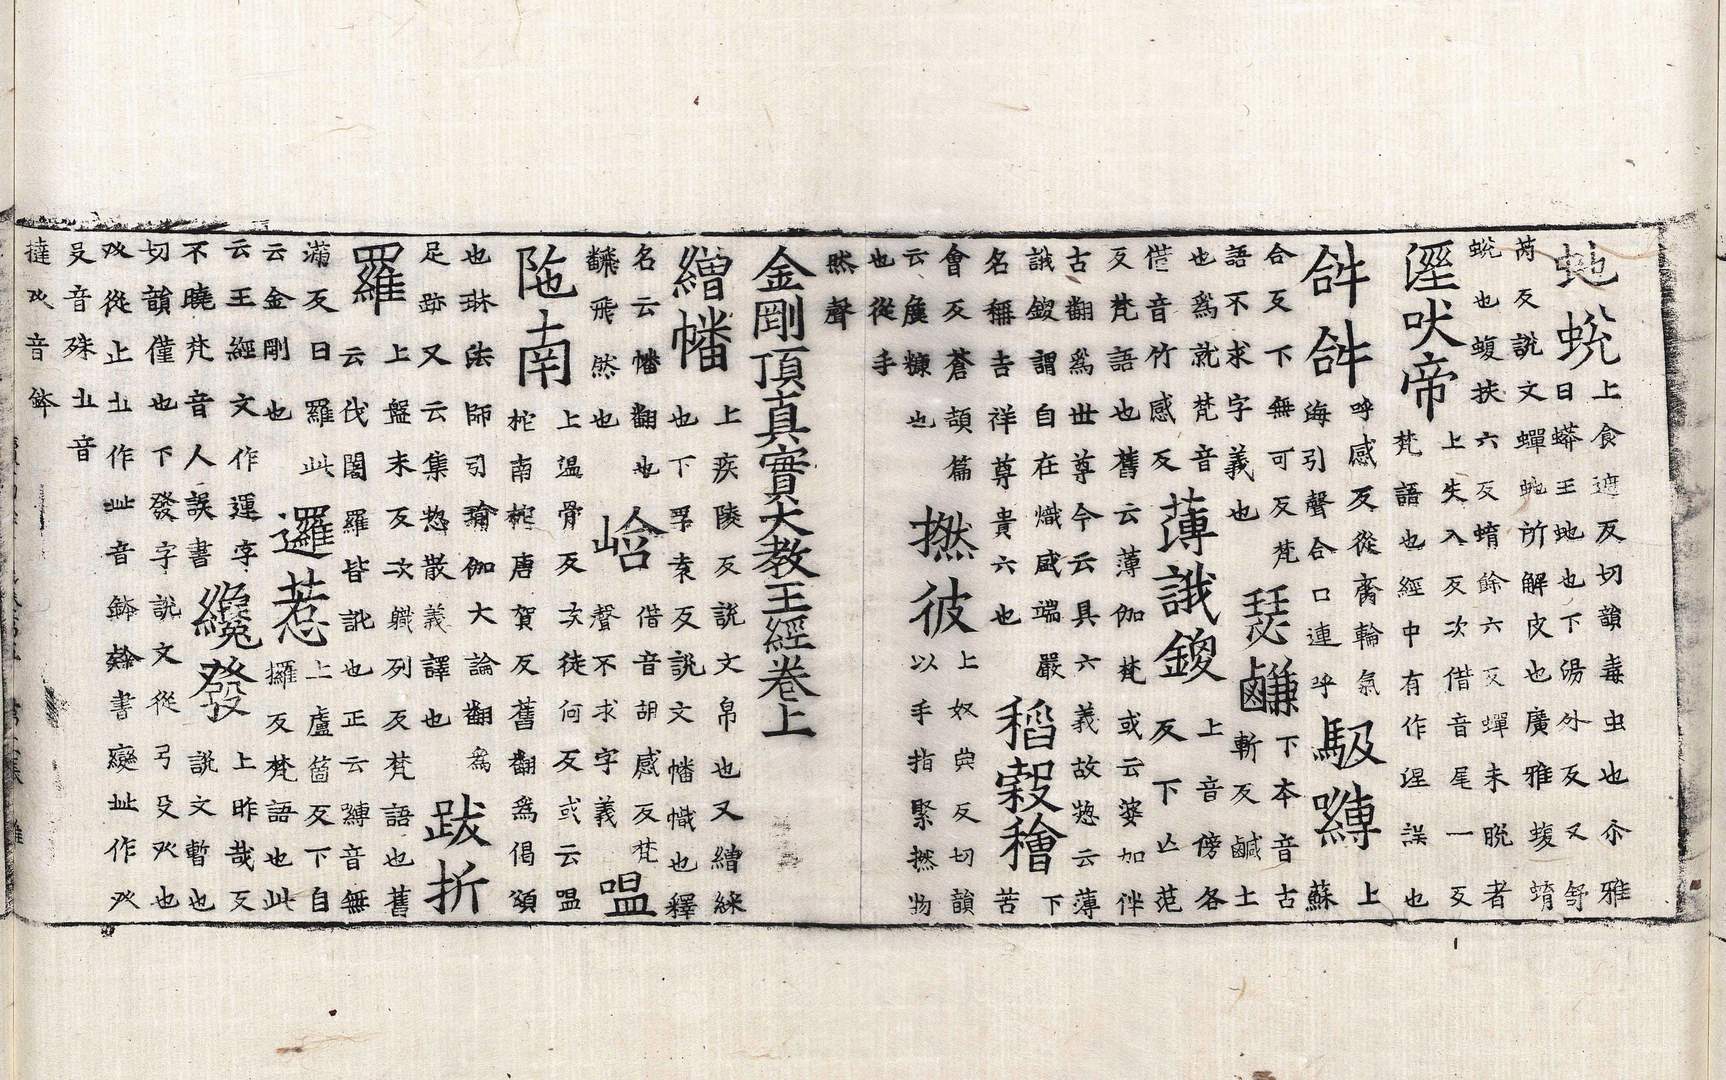 虵蛻
上食遮反切韻毒虫也尒雅
曰蟒王虵也下湯外反又舒
芮反說文蟬虵所解皮也廣雅蝮蜟
蛻也蝮扶六反蜟餘六反蟬未脫者
湼吠帝
上失入反次借音尾一反
梵語也經中有作湼誤也
𤙖𤙖
呼感反從齊輪氣
海引聲合口連呼
馺嚩
上
蘇
合反下無可反梵
語不求字義也
瑟𪉜
下本音古
斬反鹹土
也為就梵音
借音竹感反
薄誐鑁
上音傍各
反下亡范
反梵語也舊云薄伽梵或云婆加伴
古翻為世尊今云具六義故惣云薄
誐鑁謂自在熾盛端嚴
名稱吉祥尊貴六也
稻穀穭
下
苦
會反蒼頡篇
云麁糠也
撚彼
上奴典反切韻
以手指緊撚物
也從手
然聲
金剛頂真實大教王經卷上
繒幡
上疾陵反說文帛也又繒綵
也下孚袁反說文幡幟也釋
名云幡翻也
飜飛然也
峆
借音胡感反梵
聲不求字義
嗢
陁南
上温骨反次徒何反或云嗢
柁南柁唐賀反舊翻為偈頌
也琳法師引瑜伽大論翻為
足跡又云集惣散義譯也
跋折
羅
上盤末反次軄列反梵語也舊
云伐闍羅皆訛也正云縛音無
滿反日羅此
云金剛也
邏惹
上盧箇反下自
攞反梵語也此
云王經文作運字
不曉梵音人誤書
纔發
上昨哉反
說文暫也
切韻僅也下發字說文從弓殳癶也
癶從止𣥂作址音鉢隸書變址作癶
殳音殊𣥂音
撻癶音鉢